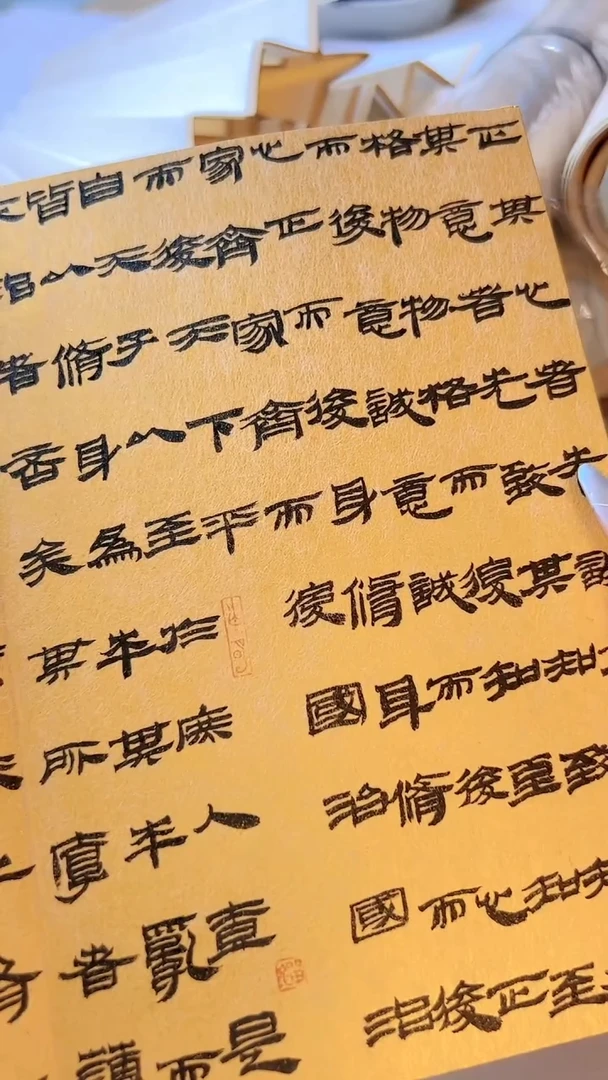 正其心者先誠
其意者先致其知致知在
格物物格而後知至知至
而後意誠意誠而後心正
心正而後身脩身脩而後
家齊家齊而後國治國治
而後天下平
自天子以至於庶人壹是
皆以脩身為本其本亂而
治者否矣其所厚者薄